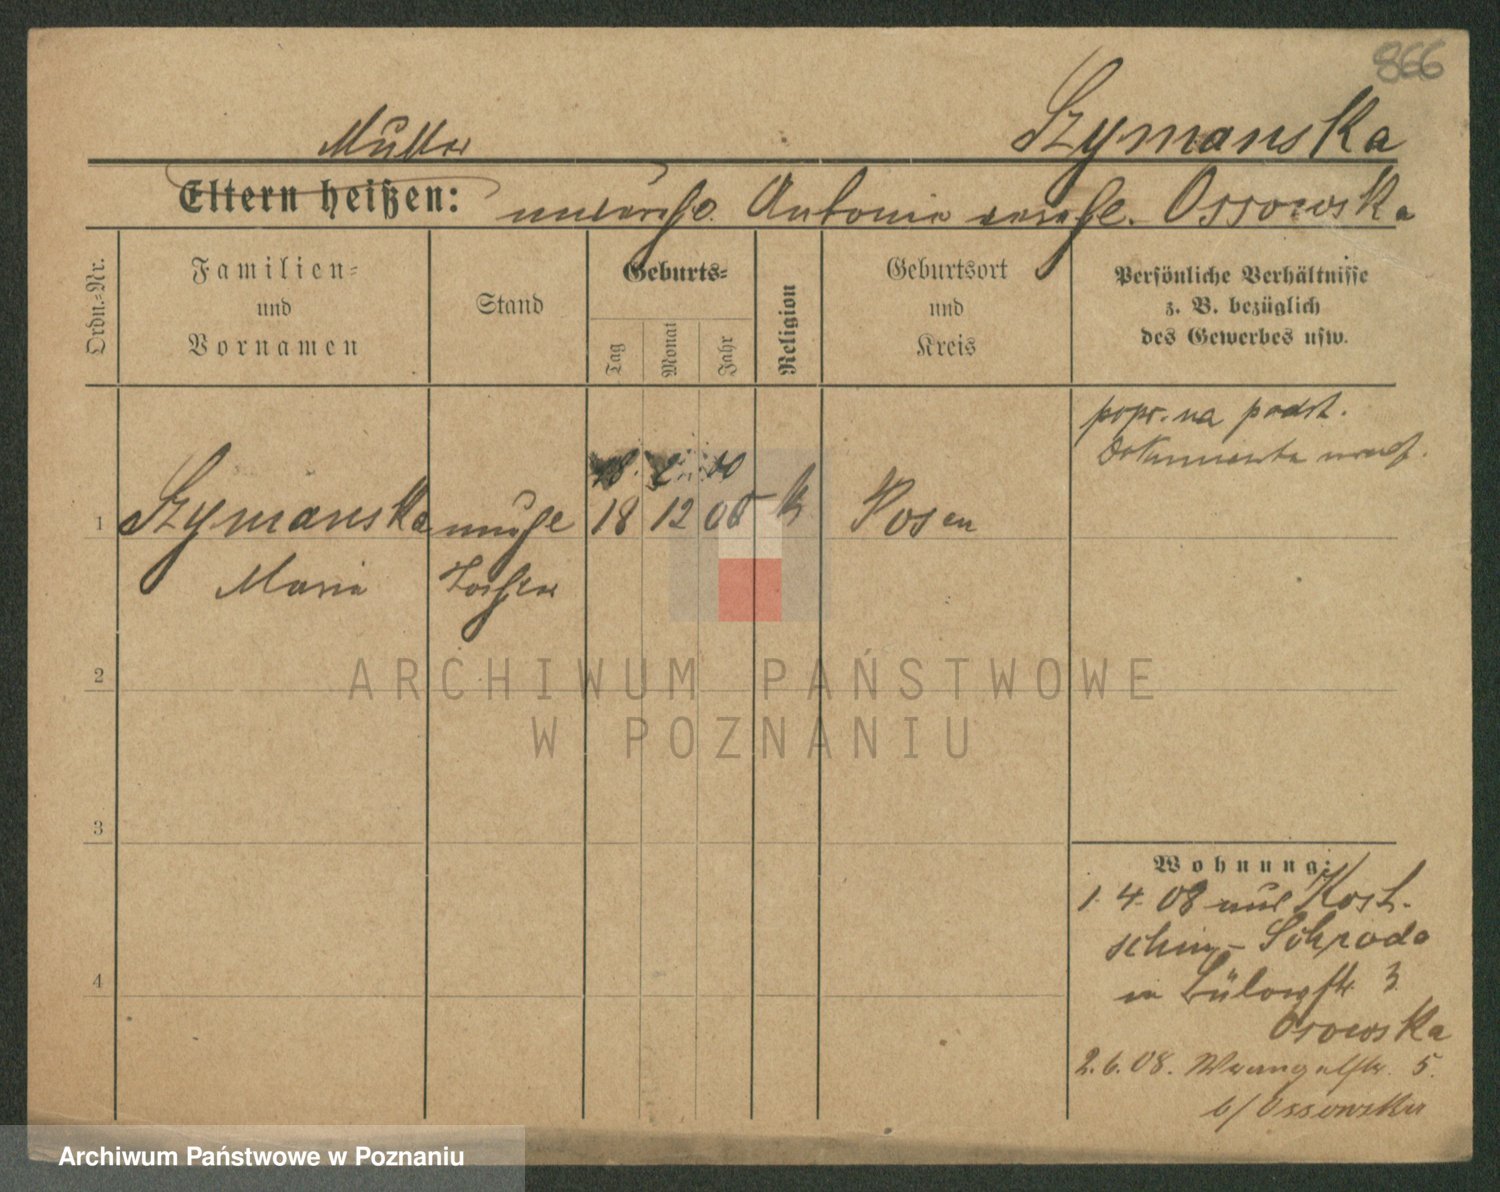 866
Mutter
Szymanska
Eltern heißen: unverehe. Antonie verehe. Ossowska
Ordn.-Nr.
Familien-
und
Vornamen
Stand
Geburts-
Tag
Monat
Jahr
Religion
Geburtsort
und
Kreis
Persönliche Verhältnisse
z. B. bezüglich
des Gewerbes usw.
popr. na podst.
Dokumentu
1 Szymanska unehe 18 12 06 k Posen
Maria Tochter
2
3
4
Wohnung:
1. 4. 08 aus Kost-
schin - Schroda
in Bülowstr. 3
Osowska
2. 6. 08. Wrangelstr. 5.
b/ Ossowska
ARCHIWUM PAŃSTWOWE
W POZNANIU
Archiwum Państwowe w Poznaniu